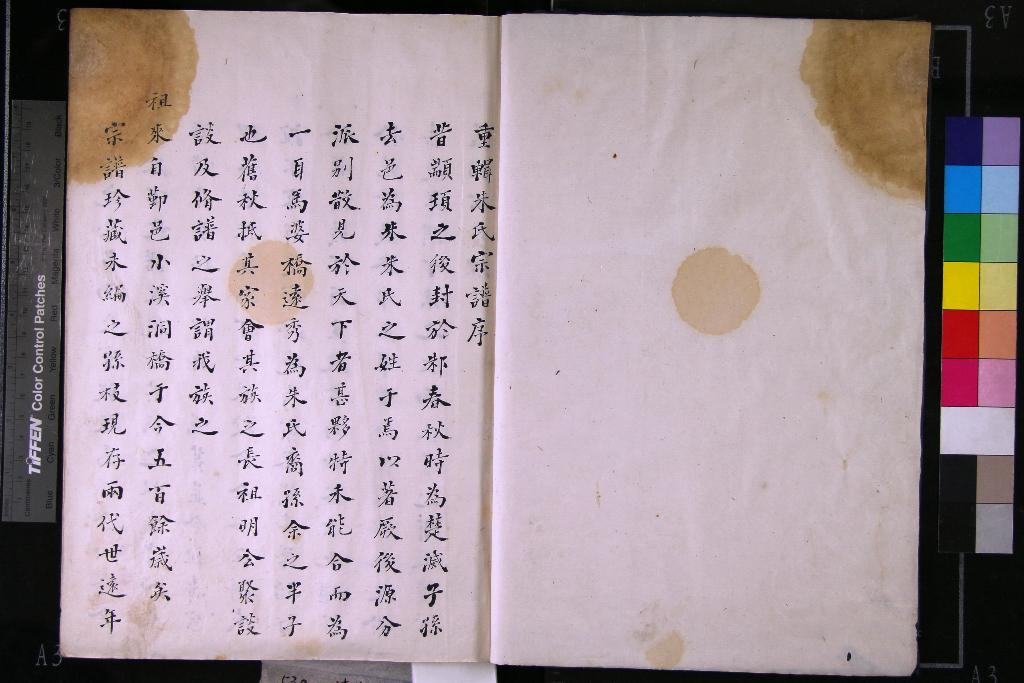 重輯朱氏宗譜序
昔顓頊之後封於邾春秋時為楚滅子孫
去邑為朱朱氏之姓于焉以著厥後源分
派别散見於天下者甚夥特未能合而為
一耳馬婆橋遠秀為朱氏裔孫余之半子
也舊秋抵其家會其族之長祖明公聚談
談及脩譜之舉謂我族之
祖來自鄞邑小溪洞橋于今五百餘歲矣
宗譜珍藏未編之孫枝現存兩代世遠年
TIFFEN Color Control Patches
Blue Cyan Green Yellow Red Magenta White 3/Color Black
Centimetres
A3
A3
A3
A3
B